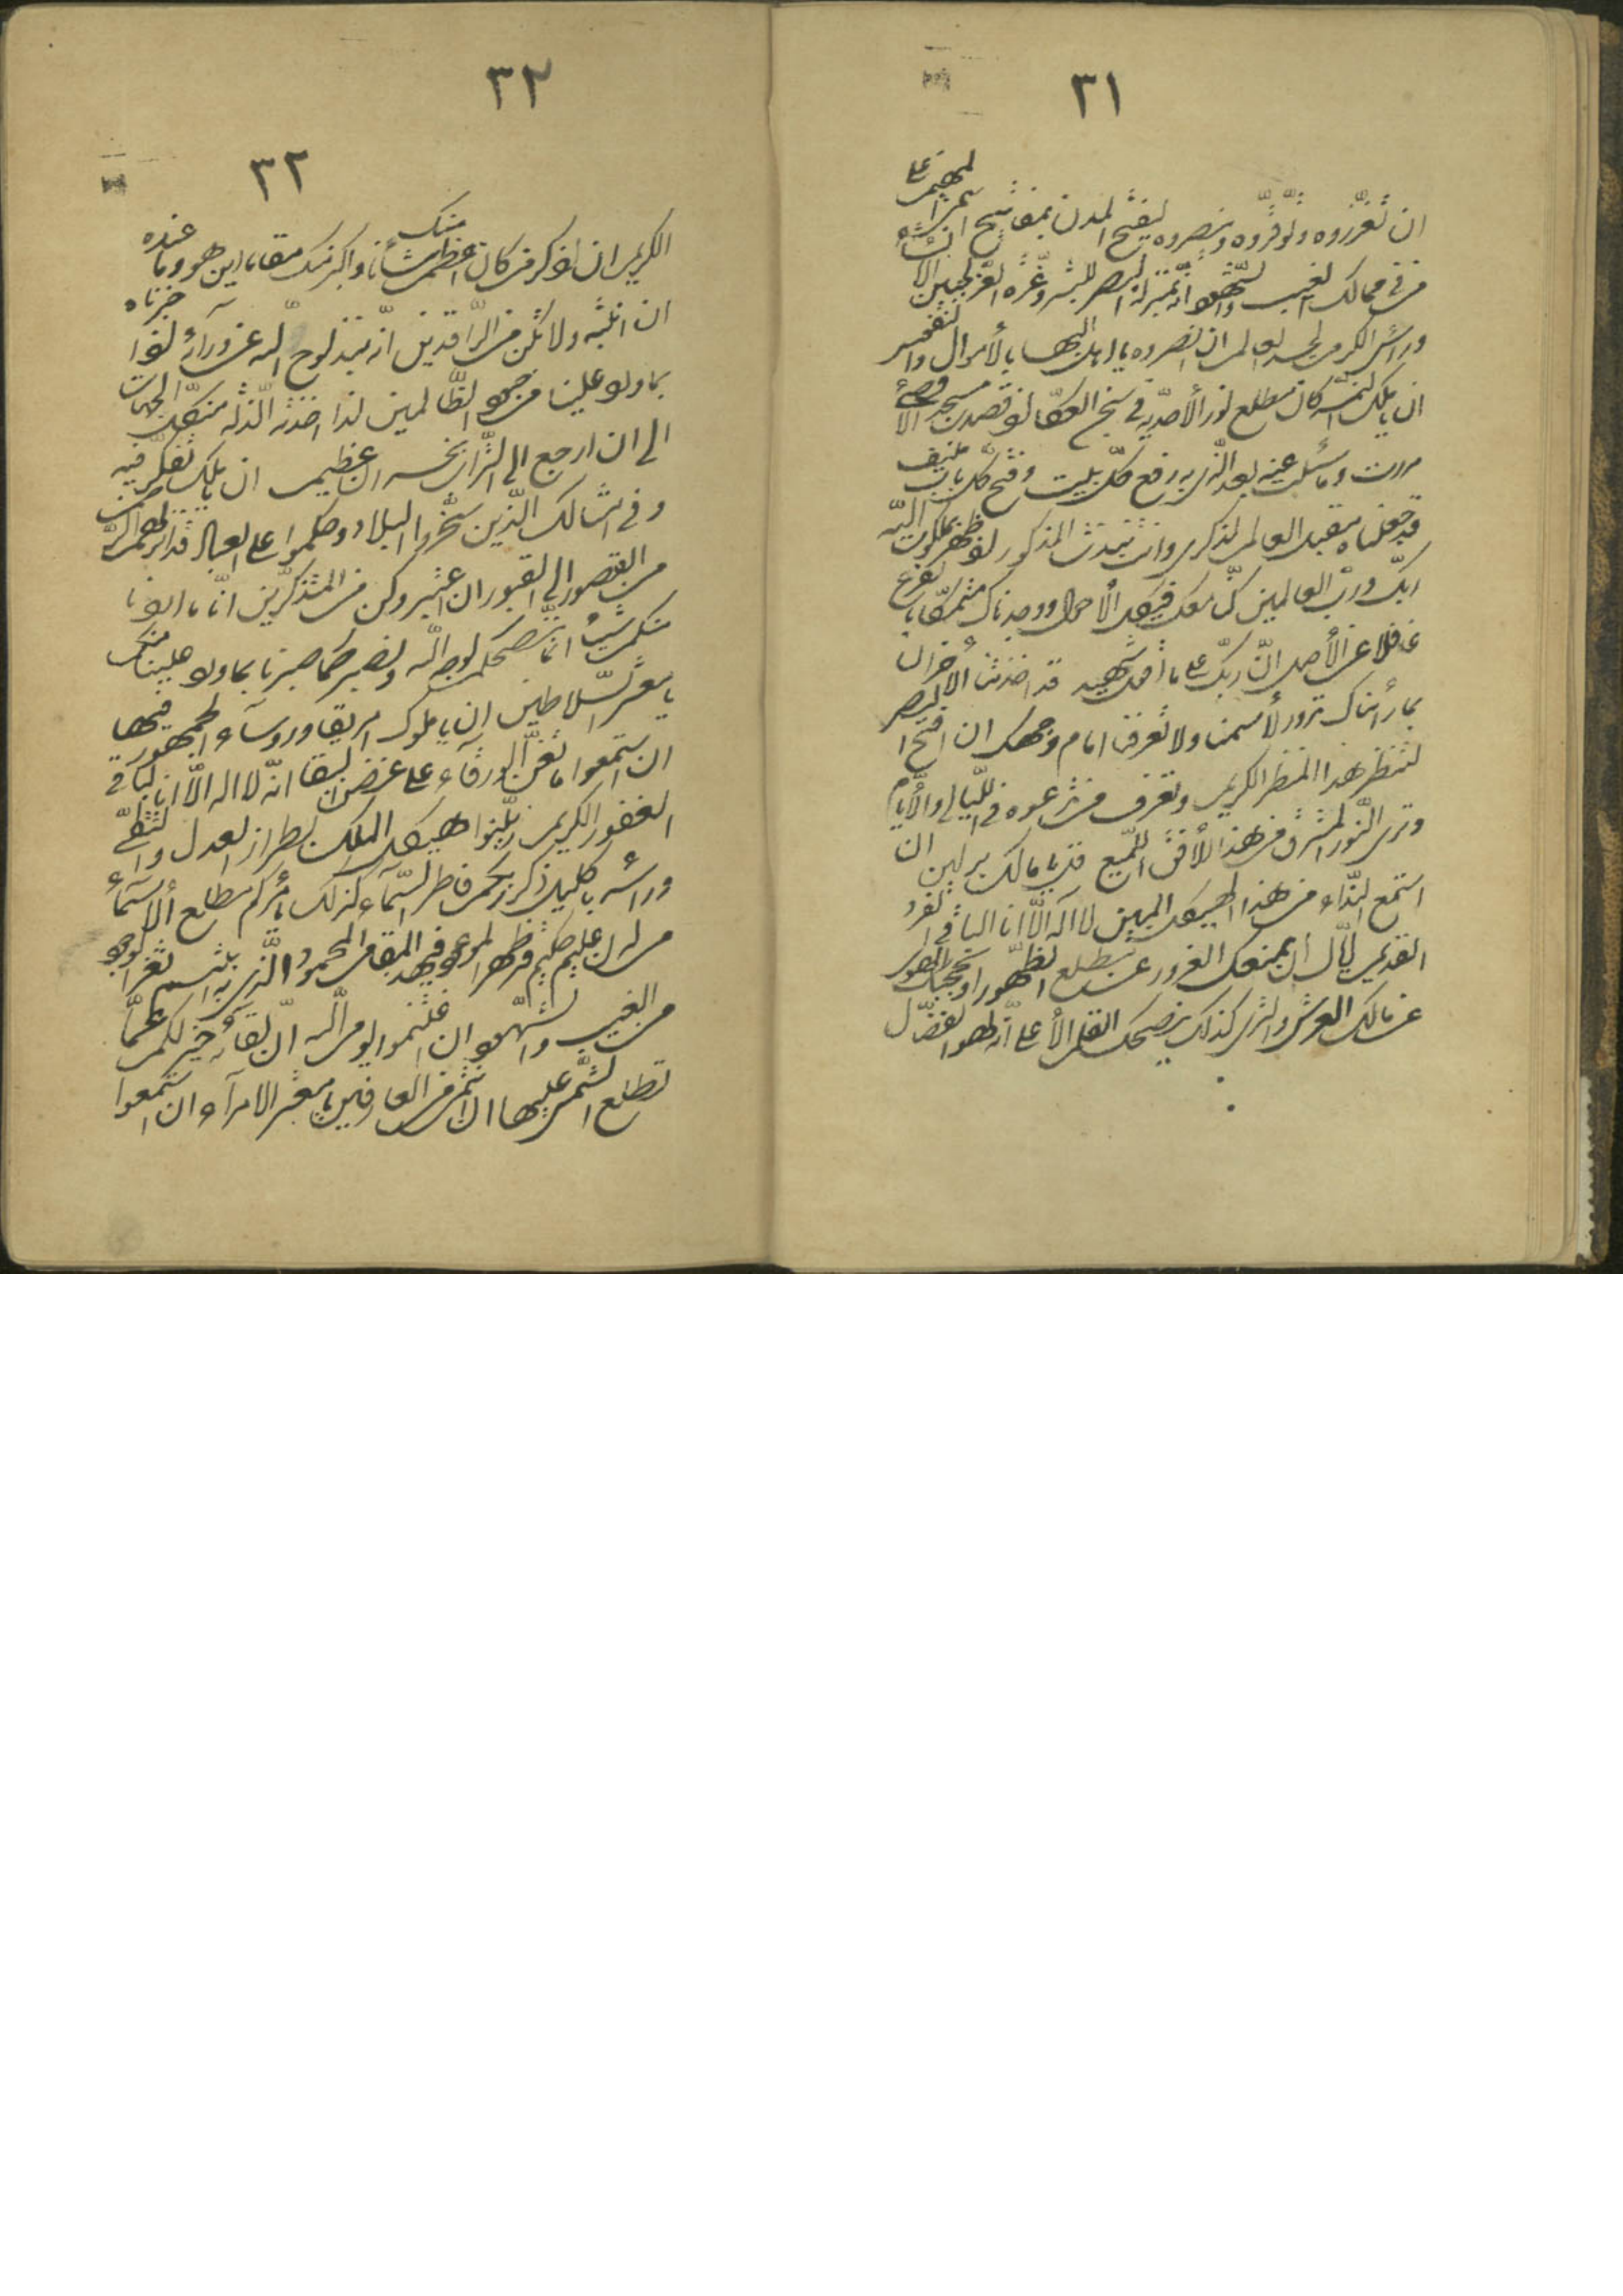 ٣١
ان تعزّروه وتوقّروه وتنصروه ليفتح المدن بمفاتيح اسمي المهيمن على
من في ممالك الغيب والشهود انّه بمنزلة البصر للبشر وغرّة الغرّاء لجبين الانشاء
وراس الكرم لجسد العالم ان انصروه يا اهل البهاء بالأموال والنفوس
ان يا ملك النمسه كان مطلع نور الأحديّه في سجن العكّاء اذ قصدت مسجد الاقصى
مررت وما سئلت عنه بعد الّذي به رفع كلّ بيت وفتح كلّ باب منيف
قد جعلناه مقبل العالم لذكري وانت نبذت المذكور اذ ظهر بملكوت اللّه
ربّك وربّ العالمين كنّا معك في كلّ الأحوال ووجدناك متمسّكا بالفرع
غافلا عن الأصل انّ ربّك على ما اقول شهيد قد اخذتنا الاحزان
بما رأيناك تدور لأسمنا ولا تعرفنا امام وجهك ان افتح البصر
لتنظر هذا المنظر الكريم وتعرف من تدعوه في اللّيالي والأيّام
وترى النّور المشرق من هذا الأفق اللّميع قل يا ملك برلين ان
استمع النّداء من هذا الهيكل المبين لا اله الّا انا الباقي الفرد
القديم ايّاك ان يمنعك الغرور عن مطلع الظّهور او يحجبك الهوى
عن مالك العرش والثّرى كذلك ينصحك القلم الأعلى انّه لهو الفضّال
٣٢
٣٢
الكريم ان اذكر من كان اعظم منك شأنا واكبر منك مقاما اين هو وما عنده
ان انتبه ولا تكن من الرّاقدين انّه نبذ لوح اللّه عن ورآئه اذ اخبرناه
بما ورد علينا من جنود الظّالمين لذا اخذته الذّلّه من كلّ الجهات
الى ان ارجع الى التّراب بخسران عظيم ان يا ملك تفكّر فيه
وفي امثالك الّذين سخّروا البلاد وحكموا على العباد قد انزلهم الرّحمن
من القصور الى القبور ان اعتبر وكن من المتذكّرين انّا ما اردنا
منكم شيئا انّما ننصحكم لوجه اللّه ونصبر كما صبرنا بما ورد علينا منكم
يا معشر السّلاطين ان يا ملوك امريقا ورؤسآء الجمهور فيها
ان استمعوا ما تغنّ الورقآء على غصن البقا انّه لا اله الّا انا الباقي
الغفور الكريم زيّنوا هيكل الملك بطراز العدل والتّقى
ورأسه باكليل ذكر ربّكم فاطر السّمآء كذلك يأمركم مطلع الأسمآء
من لدن عليم حكيم قد ظهر الموعود في هذا المقام المحمود الّذي به ابتسم ثغر الوجود
من الغيب والشّهود ان اغتنموا يوم اللّه انّ لقآئه خير لكم عمّا
تطلع الشّمس عليها ان انتم من العارفين يا معشر الامرآء ان استمعوا